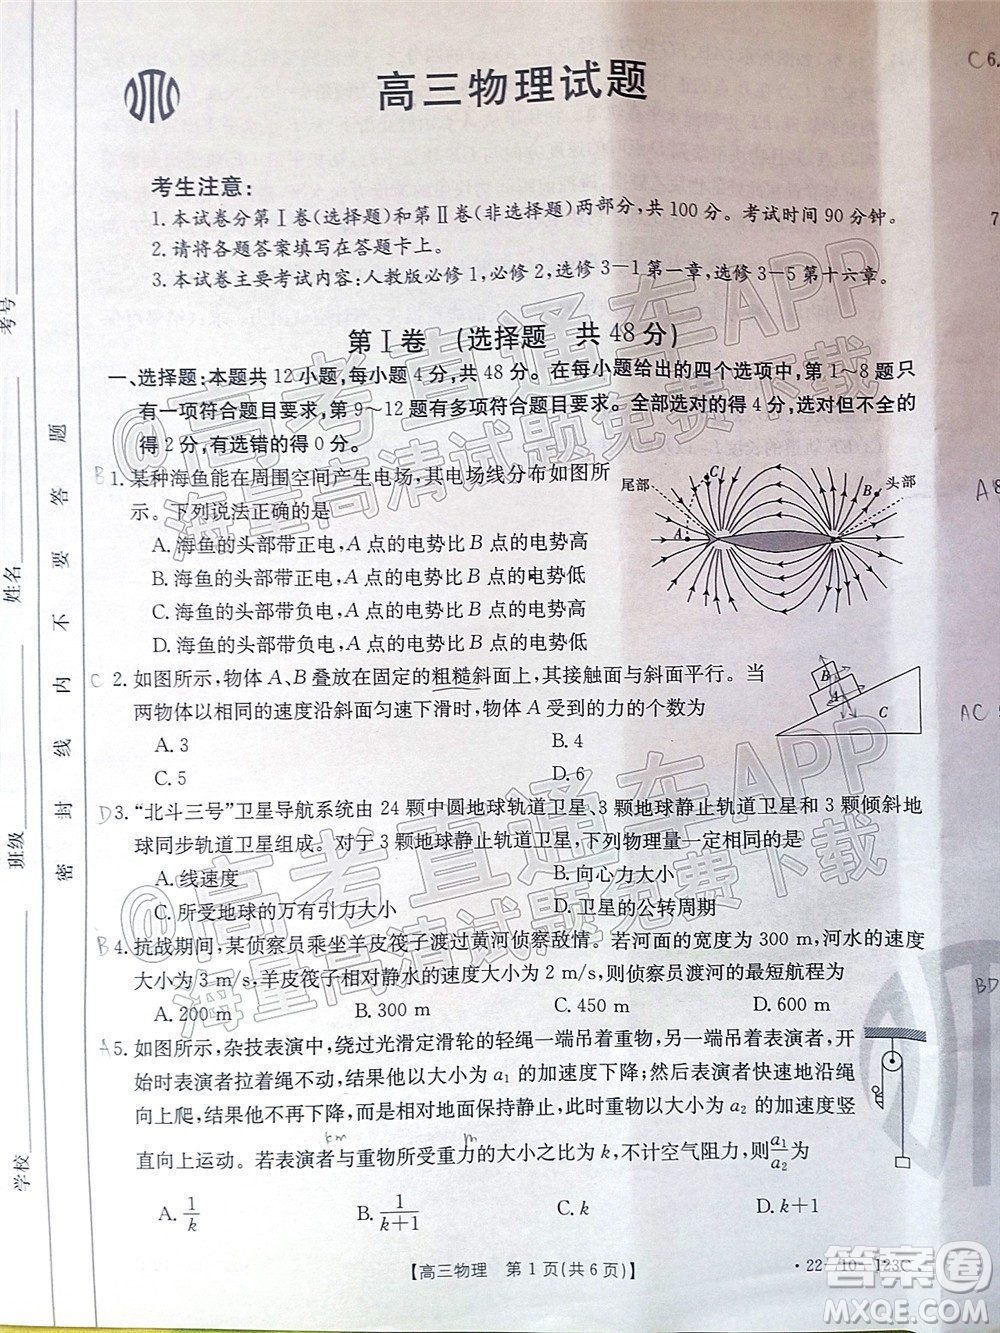 高三物理试题
考生注意:
1.本试卷分第Ⅰ卷(选择题)和第Ⅱ卷(非选择题)两部分,共100分。考试时间90分钟。
2.请将各题答案填写在答题卡上。
3.本试卷主要考试内容:人教版必修1,必修2,选修3-1第一章,选修3-5第十六章。
第Ⅰ卷 (选择题 共48分)
一、选择题:本题共12小题,每小题4分,共48分。在每小题给出的四个选项中,第1~8题只
有一项符合题目要求,第9~12题有多项符合题目要求。全部选对的得4分,选对但不全的
得2分,有选错的得0分。
B 1.某种海鱼能在周围空间产生电场,其电场线分布如图所
示。下列说法正确的是
A.海鱼的头部带正电,A点的电势比B点的电势高
B.海鱼的头部带正电,A点的电势比B点的电势低
C.海鱼的头部带负电,A点的电势比B点的电势高
D.海鱼的头部带负电,A点的电势比B点的电势低
尾部 C A B 头部
C 2.如图所示,物体A、B叠放在固定的粗糙斜面上,其接触面与斜面平行。当
两物体以相同的速度沿斜面匀速下滑时,物体A受到的力的个数为
A.3 B.4
C.5 D.6
B A C
D 3.“北斗三号”卫星导航系统由24颗中圆地球轨道卫星、3颗地球静止轨道卫星和3颗倾斜地
球同步轨道卫星组成。对于3颗地球静止轨道卫星,下列物理量一定相等的是
A.线速度 B.向心力大小
C.所受地球的万有引力大小 D.卫星的公转周期
B 4.抗战期间,某侦察员乘坐羊皮筏子渡过黄河侦察敌情。若河面的宽度为300 m,河水的速度
大小为3 m/s,羊皮筏子相对静水的速度大小为2 m/s,则侦察员渡河的最短航程为
A.200 m B.300 m C.450 m D.600 m
A 5.如图所示,杂技表演中,绕过光滑定滑轮的轻绳一端吊着重物,另一端由表演者拉着,开
始时表演者拉着绳不动,结果他以大小为a₁的加速度下降;然后表演者快速地沿绳
向上爬,但其相对地面保持静止,此时重物以大小为a₂的加速度竖
km m
直向上运动。若表演者与重物所受重力的大小之比为k,不计空气阻力,则a₁/a₂为
A.1/k B.1/(k+1) C.k D.k+1
【高三物理 第1页(共6页)】
·22-10-123C·
学校
班级
姓名
考号
密 封 线 内 不 要 答 题
C 6.
7
A 8
AC
BD
@高考直通车APP
海量高清试题免费下载
@高考直通车APP
海量高清试题免费下载
答案圈
MXQE.COM